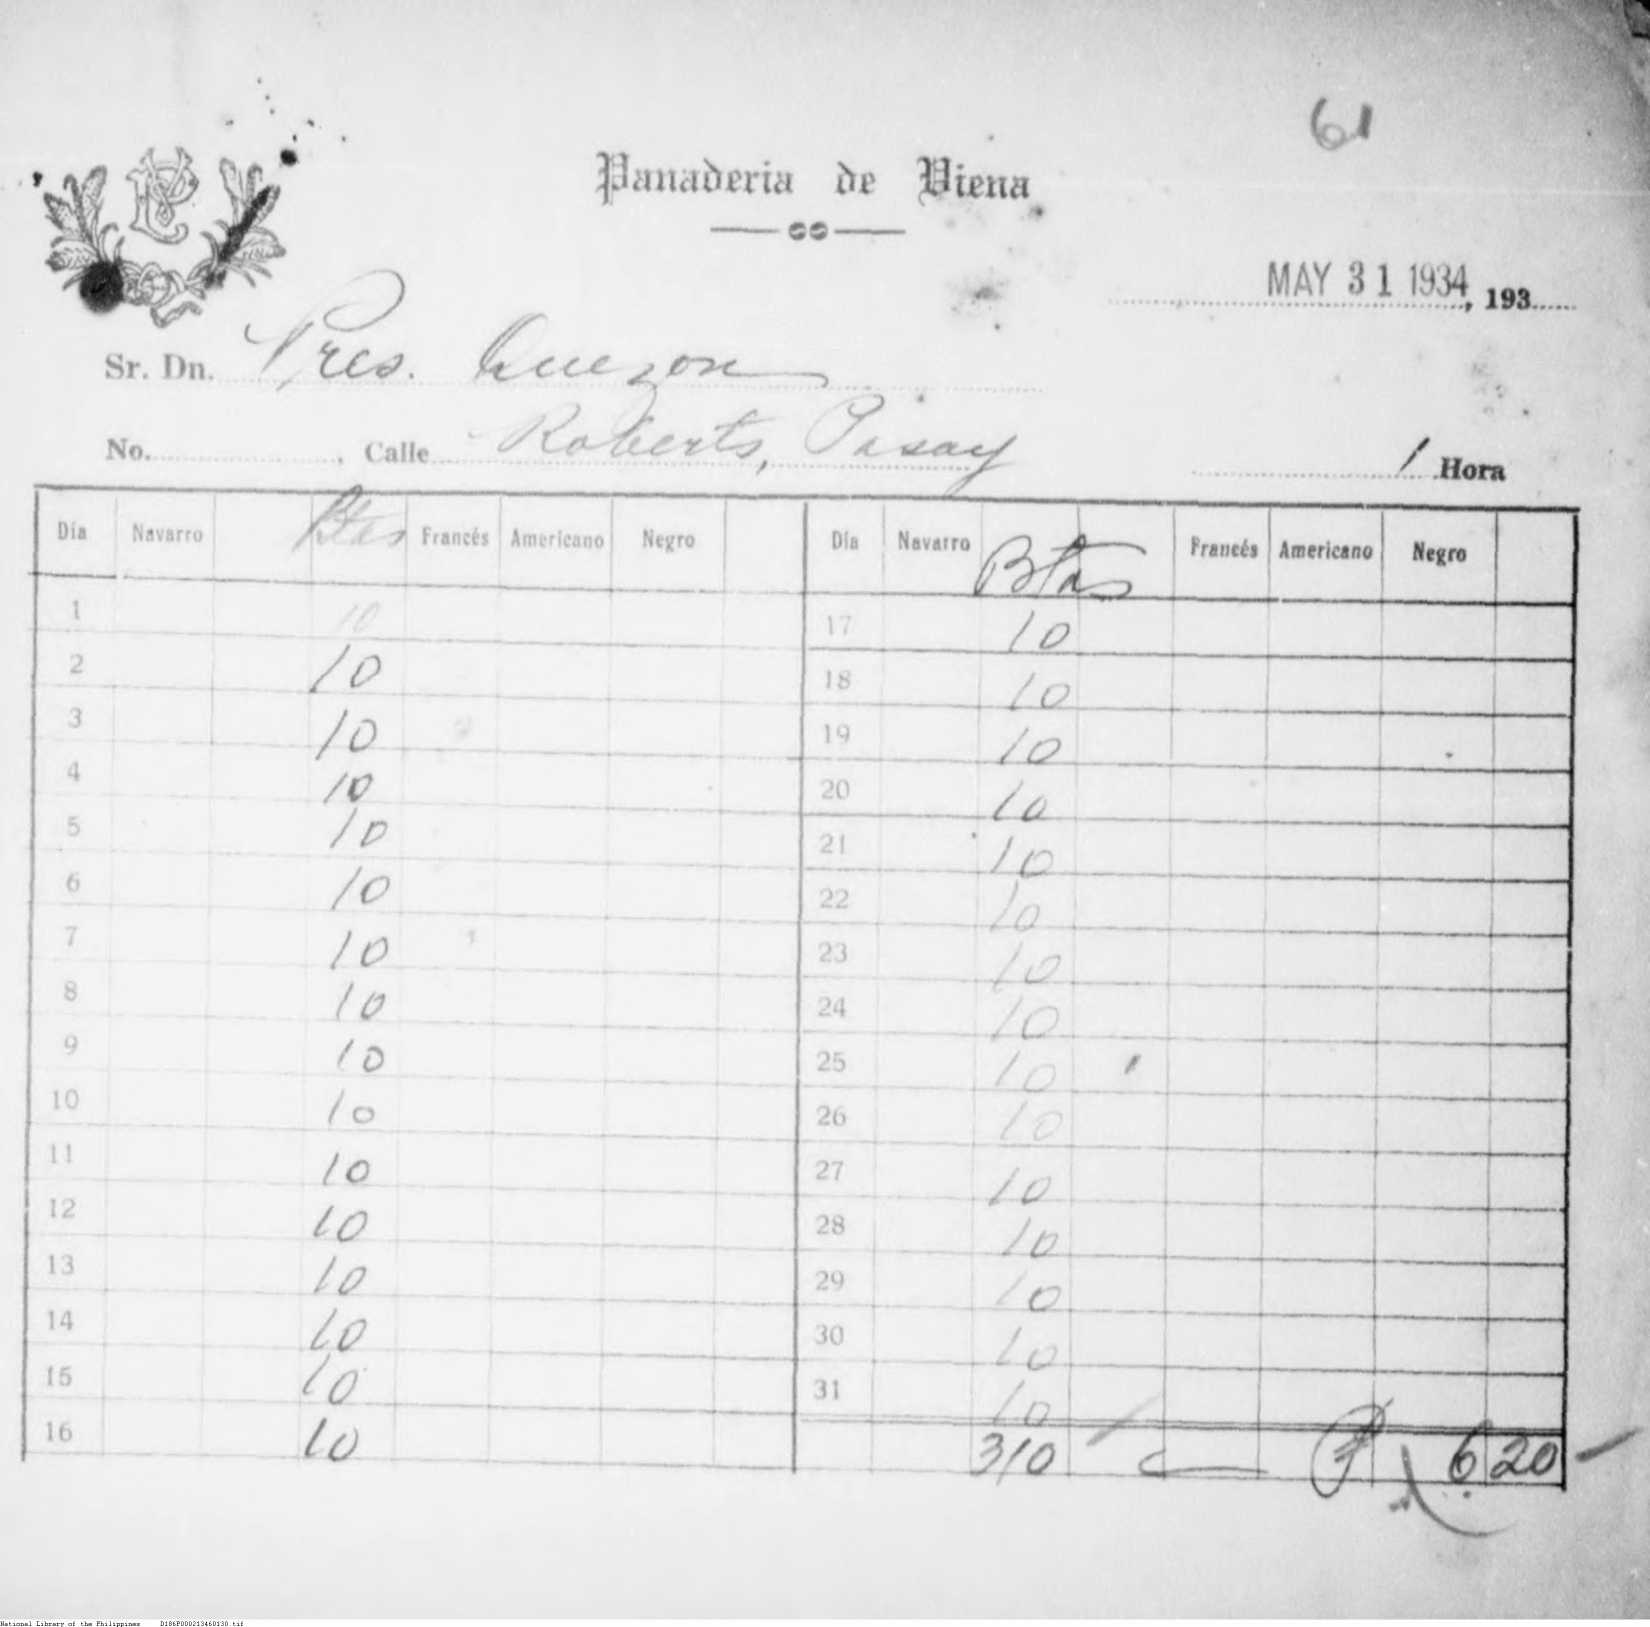 61
Panaderia de Viena
MAY 31 1934, 193
Sr. Dn. Pres. Quezon
No. , Calle Roberts, Pasay 1 Hora
Día Navarro Btas Francés Americano Negro Día Navarro Btas Francés Americano Negro
1 10 17 10
2 10 18 10
3 10 19 10
4 10 20 10
5 10 21 10
6 10 22 10
7 10 23 10
8 10 24 10
9 10 25 10
10 10 26 10
11 10 27 10
12 10 28 10
13 10 29 10
14 10 30 10
15 10 31 10
16 10 310 ₱ 6 20
National Library of the Philippines D186P000213460130.tif